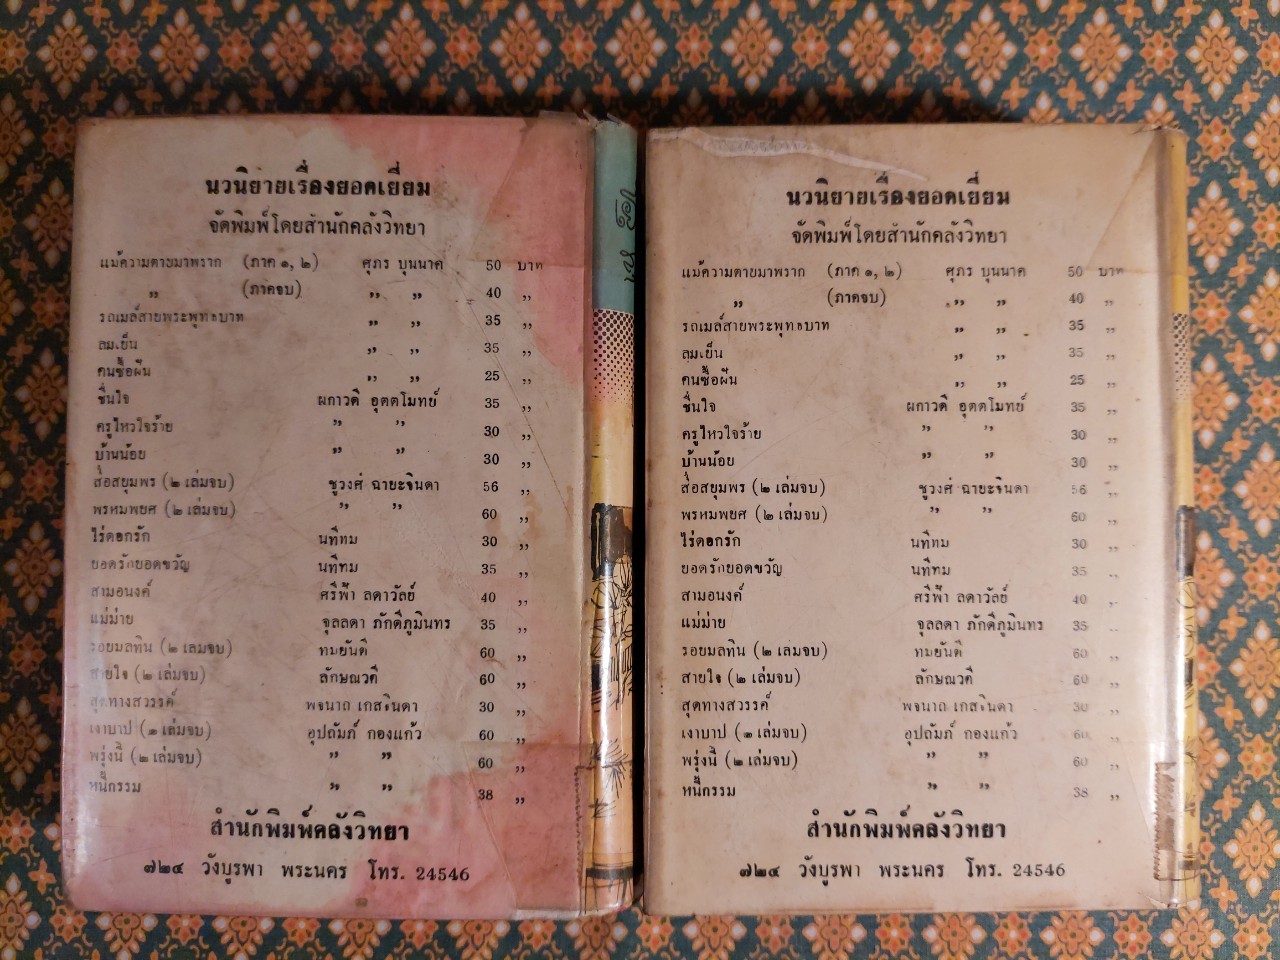 นวนิยายเรื่องยอดเยี่ยม
จัดพิมพ์โดยสำนักคลังวิทยา
แม้ความตายมาพราก (ภาค ๑, ๒) ศุภร บุนนาค 50 บาท
„ (ภาคจบ) „ „ 40 „
รถเมล์สายพระพุทธบาท „ „ 35 „
ลมเย็น „ „ 35 „
คนซื้อผืน „ „ 25 „
ชื่นใจ ผกาวดี อุตตโมทย์ 35 „
ครูไหวใจร้าย „ „ 30 „
บ้านน้อย „ „ 30 „
สื่อสยุมพร (๒ เล่มจบ) ชูวงศ์ ฉายะจินดา 56 „
พรหมพยศ (๒ เล่มจบ) „ „ 60 „
ไร่ดอกรัก นทีทม 30 „
ยอดรักยอดขวัญ นทีทม 35 „
สามอนงค์ ศรีฟ้า ลดาวัลย์ 40 „
แม่ม่าย จุลลดา ภักดีภูมินทร 35 „
รอยมลทิน (๒ เล่มจบ) ทมยันตี 60 „
สายใจ (๒ เล่มจบ) ลักษณวดี 60 „
สุดทางสวรรค์ พจนาถ เกสจินดา 30 „
เงาบาป (๑ เล่มจบ) อุปถัมภ์ กองแก้ว 60 „
พรุ่งนี้ (๒ เล่มจบ) „ „ 60 „
หนี้กรรม „ „ 38 „
สำนักพิมพ์คลังวิทยา
๗๒๔ วังบูรพา พระนคร โทร. 24546
นวนิยายเรื่องยอดเยี่ยม
จัดพิมพ์โดยสำนักคลังวิทยา
แม้ความตายมาพราก (ภาค ๑, ๒) ศุภร บุนนาค 50 บาท
„ (ภาคจบ) „ „ 40 „
รถเมล์สายพระพุทธบาท „ „ 35
ลมเย็น „ „ 35 „
คนซื้อผืน „ „ 25 „
ชื่นใจ ผกาวดี อุตตโมทย์ 35 „
ครูไหวใจร้าย „ „ 30 „
บ้านน้อย „ „ 30 „
สื่อสยุมพร (๒ เล่มจบ) ชูวงศ์ ฉายะจินดา 56 „
พรหมพยศ (๒ เล่มจบ) „ „ 60 „
ไร่ดอกรัก นทีทม 30 „
ยอดรักยอดขวัญ นทีทม 35 „
สามอนงค์ ศรีฟ้า ลดาวัลย์ 40 „
แม่ม่าย จุลลดา ภักดีภูมินทร 35 „
รอยมลทิน (๒ เล่มจบ) ทมยันตี 60 „
สายใจ (๒ เล่มจบ) ลักษณวดี 60 „
สุดทางสวรรค์ พจนาถ เกสจินดา 30 „
เงาบาป (๑ เล่มจบ) อุปถัมภ์ กองแก้ว 60 „
พรุ่งนี้ (๒ เล่มจบ) „ „ 60 „
หนี้กรรม „ „ 38 „
สำนักพิมพ์คลังวิทยา
๗๒๔ วังบูรพา พระนคร โทร. 24546